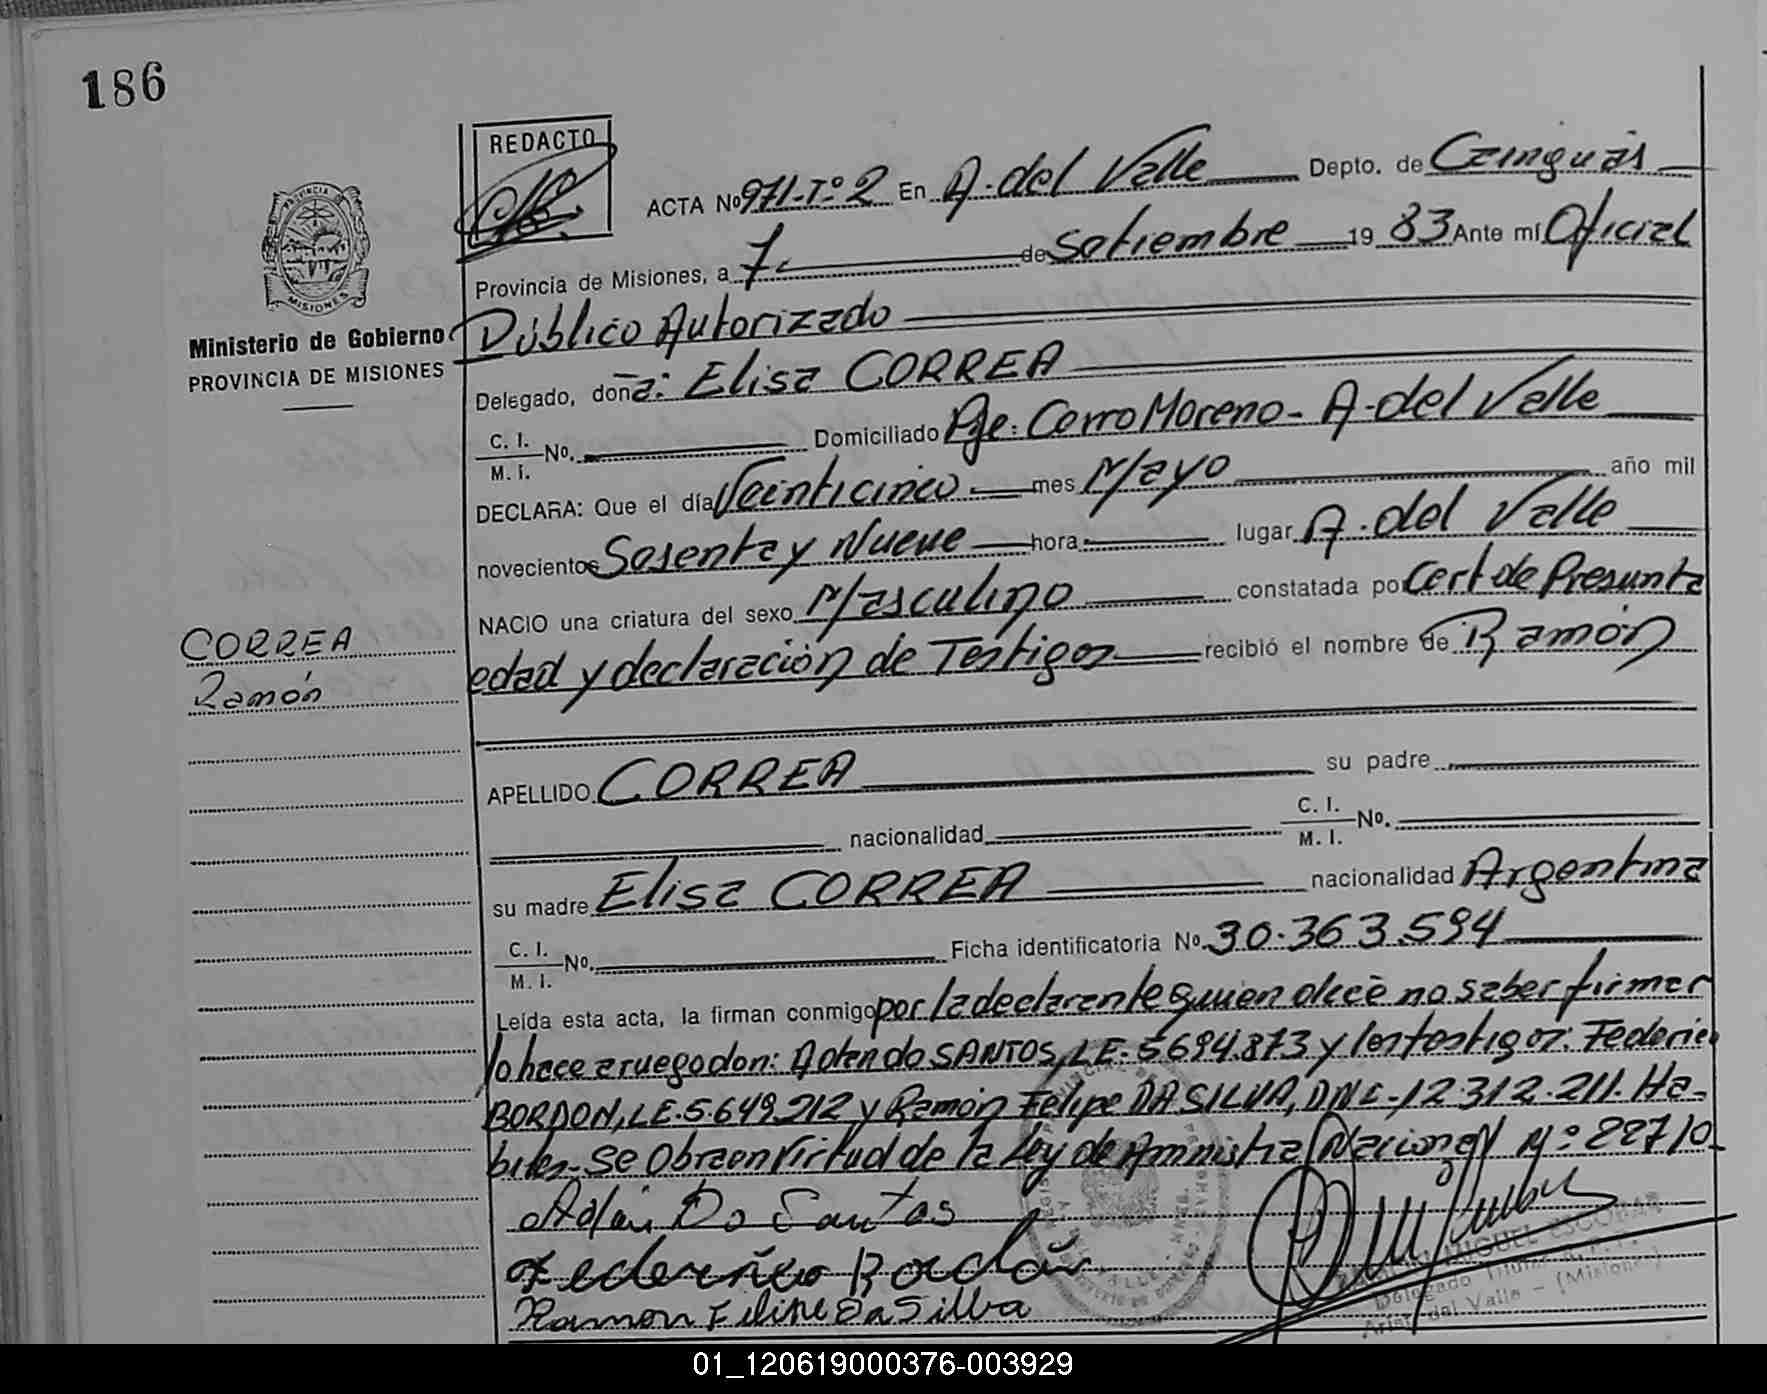 186
REDACTO
ACTA Nº 971-Tº2 En A. del Valle Depto. de Cainguás
Provincia de Misiones, a 7 de Setiembre 19 83 Ante mí Oficial
Público Autorizado
MISIONES
Ministerio de Gobierno
PROVINCIA DE MISIONES
Delegado, doña: Elisa CORREA
C. I.
M. I. No. Domiciliado Pje: Cerro Moreno - A. del Valle
DECLARA: Que el día Veinticinco mes Mayo año mil
novecientos Sesenta y Nueve hora lugar A. del Valle
NACIO una criatura del sexo Masculino constatada por Cert de Presunta
edad y declaración de Testigos recibió el nombre de Ramón
CORREA
Ramón
APELLIDO CORREA su padre
nacionalidad C. I.
M. I. No.
su madre Elisa CORREA nacionalidad Argentina
C. I.
M. I. No. Ficha identificatoria No. 30.363.594
Leída esta acta, la firman conmigo por la declarante quien dice no saber firmar
lo hace a ruego don: SANTOS, L.E. 5694.873 y los testigos: Federico
BORDON, L.E. 5.649.212 y Ramón Felipe DA SILVA, DNI.-12.312.211. Ha-
biles. Se Obra en Virtud de la Ley de Amnistia Nacional Nº 22710
Do Santos
Federico Bordón
Ramon Felipe Da Silba
MIGUEL ESCOBAR
Delegado Titular
del Valle - (Misiones)
01_120619000376-003929